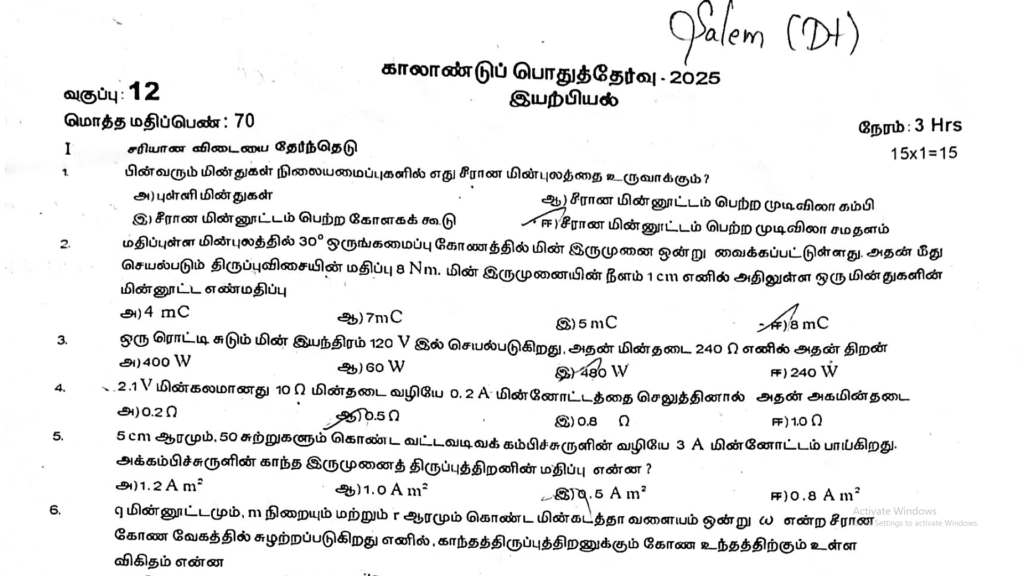 Salem (Dt)
காலாண்டுப் பொதுத்தேர்வு - 2025
வகுப்பு : 12
இயற்பியல்
மொத்த மதிப்பெண் : 70
நேரம் : 3 Hrs
I சரியான விடையை தேர்ந்தெடு
15x1=15
1. பின்வரும் மின்துகள் நிலையமைப்புகளில் எது சீரான மின்புலத்தை உருவாக்கும் ?
அ) புள்ளி மின்துகள் ஆ) சீரான மின்னூட்டம் பெற்ற முடிவிலா கம்பி
இ) சீரான மின்னூட்டம் பெற்ற கோளகக் கூடு ஈ) சீரான மின்னூட்டம் பெற்ற முடிவிலா சமதளம்
2. மதிப்புள்ள மின்புலத்தில் 30° ஒருங்கமைப்பு கோணத்தில் மின் இருமுனை ஒன்று வைக்கப்பட்டுள்ளது. அதன் மீது
செயல்படும் திருப்புவிசையின் மதிப்பு 8 Nm. மின் இருமுனையின் நீளம் 1 cm எனில் அதிலுள்ள ஒரு மின்துகளின்
மின்னூட்ட எண்மதிப்பு
அ) 4 mC ஆ) 7mC இ) 5 mC ஈ) 8 mC
3. ஒரு ரொட்டி சுடும் மின் இயந்திரம் 120 V இல் செயல்படுகிறது, அதன் மின்தடை 240 Ω எனில் அதன் திறன்
அ) 400 W ஆ) 60 W இ) 480 W ஈ) 240 W
4. 2.1 V மின்கலமானது 10 Ω மின்தடை வழியே 0.2 A மின்னோட்டத்தை செலுத்தினால் அதன் அகமின்தடை
அ) 0.2 Ω ஆ) 0.5 Ω இ) 0.8 Ω ஈ) 1.0 Ω
5. 5 cm ஆரமும், 50 சுற்றுகளும் கொண்ட வட்டவடிவக் கம்பிச்சுருளின் வழியே 3 A மின்னோட்டம் பாய்கிறது.
அக்கம்பிச்சுருளின் காந்த இருமுனைத் திருப்புத்திறனின் மதிப்பு என்ன ?
அ) 1.2 A m² ஆ) 1.0 A m² இ) 0.5 A m² ஈ) 0.8 A m²
6. q மின்னூட்டமும், m நிறையும் மற்றும் r ஆரமும் கொண்ட மின்கடத்தா வளையம் ஒன்று ω என்ற சீரான
கோண வேகத்தில் சுழற்றப்படுகிறது எனில், காந்தத்திருப்புத்திறனுக்கும் கோண உந்தத்திற்கும் உள்ள
விகிதம் என்ன
Activate Windows
Settings to activate Windows.